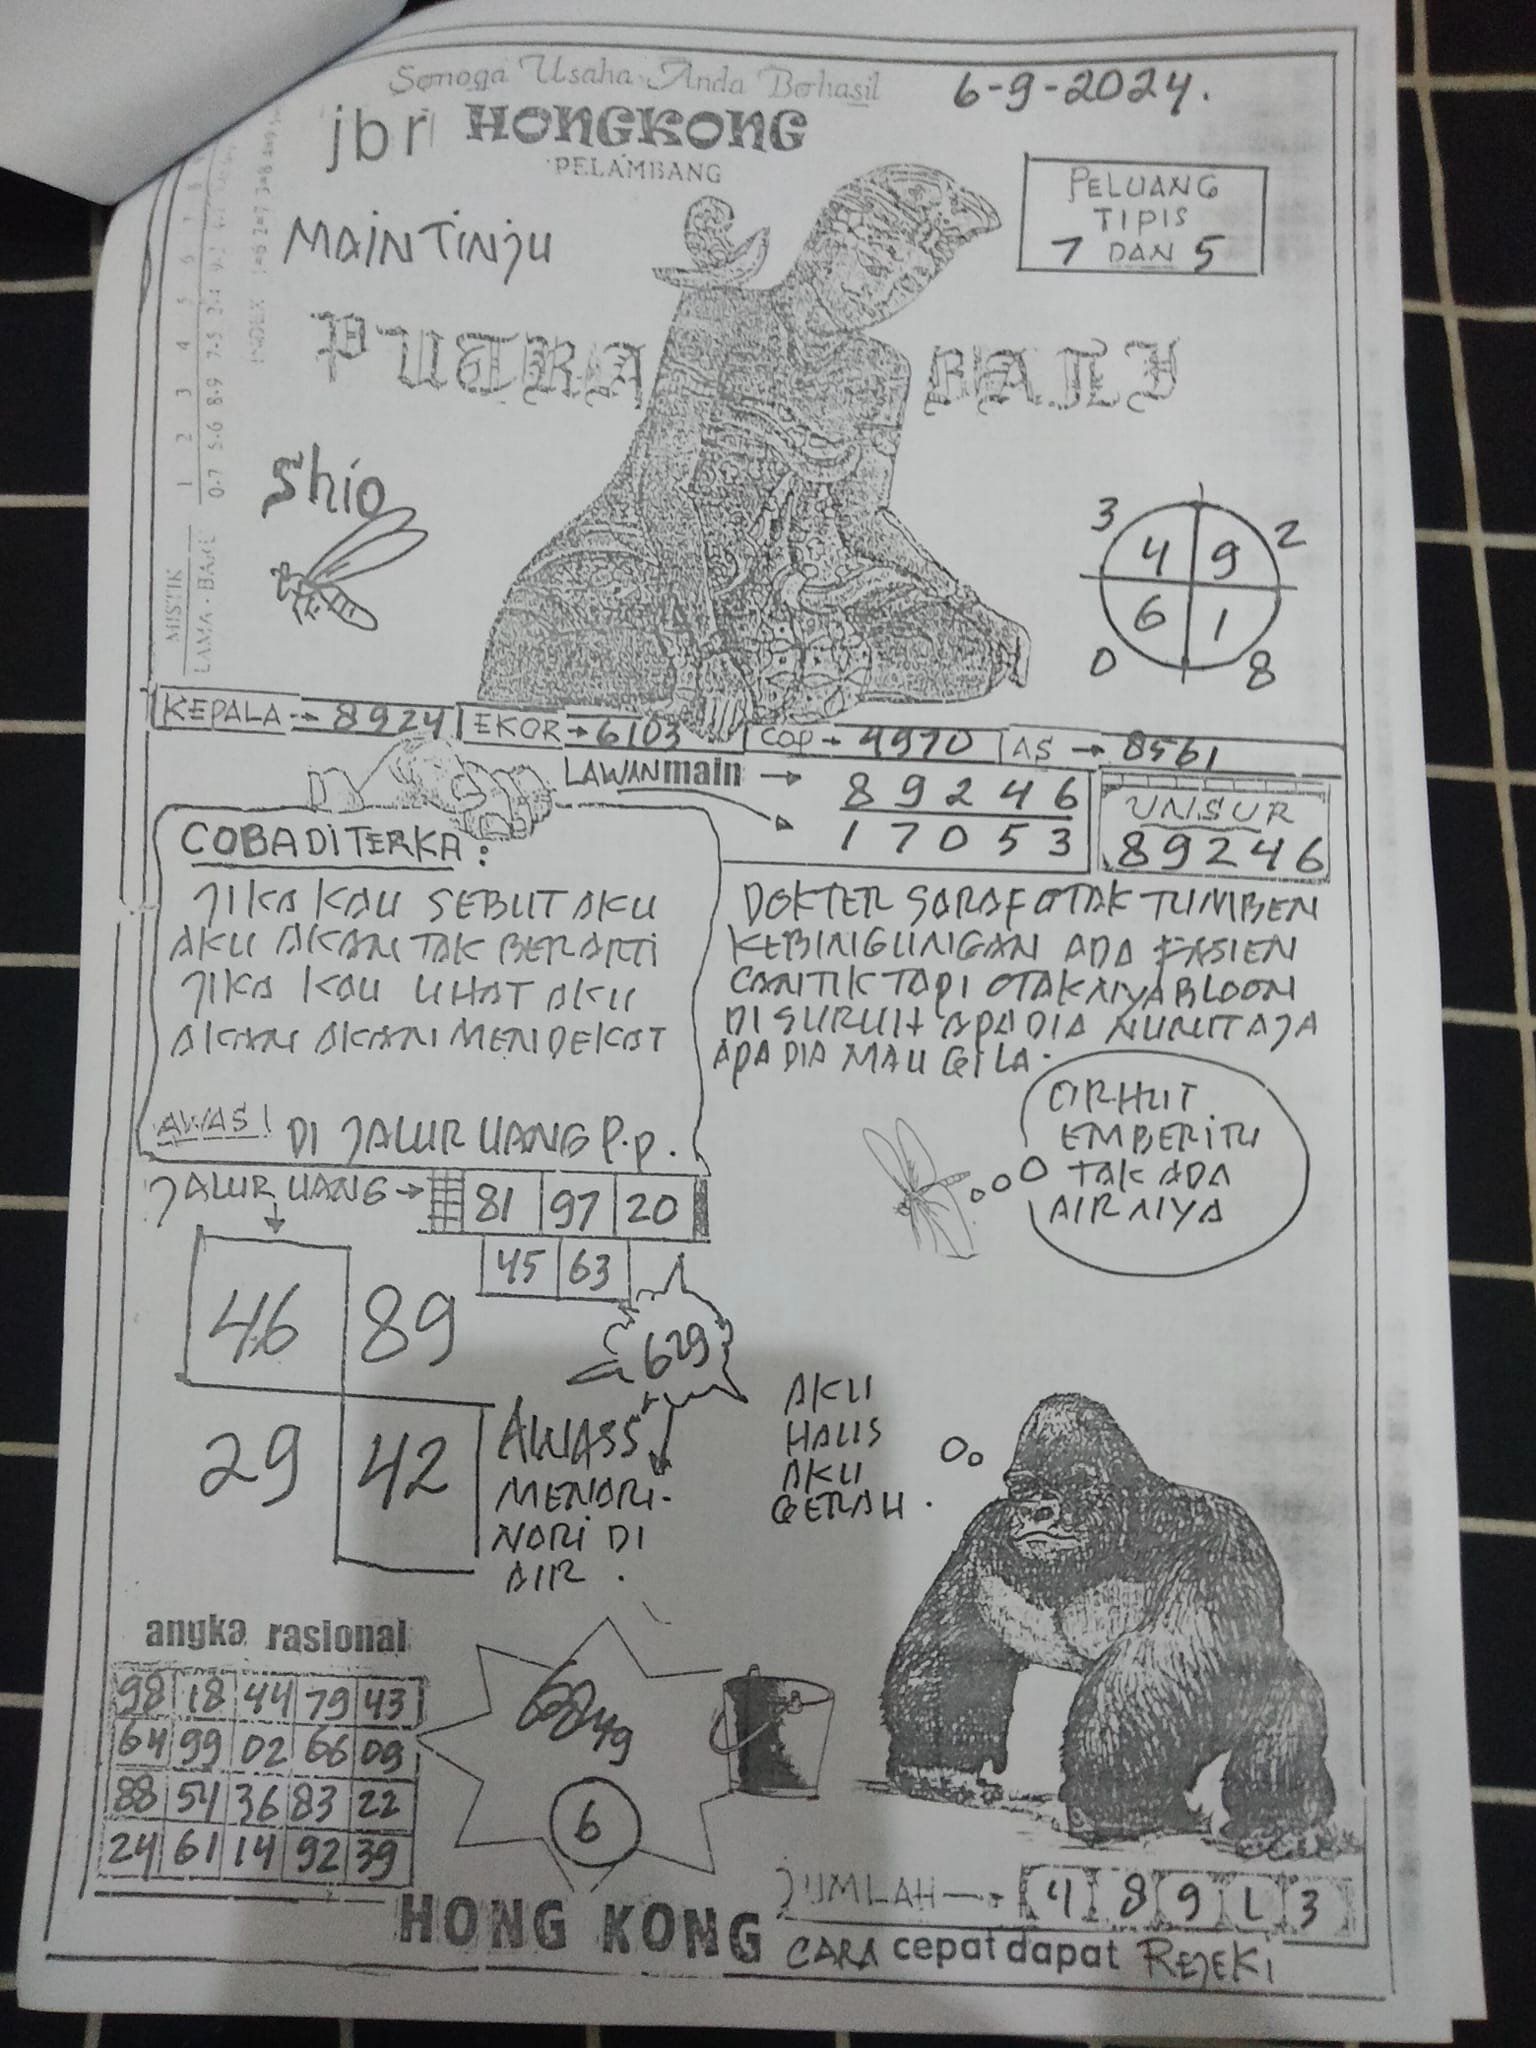 Semoga Usaha Anda Berhasil
6-9-2024.
jbr HONGKONG
PELAMBANG
PELUANG
TIPIS
7 DAN 5
MAIN TINJU
PUTRA BALI
Shio
INDEX
MISTIK
LAMA - BARU
3 2
4 9
6 1
0 8
KEPALA → 8924 EKOR → 6103 COP → 4970 AS → 8561
LAWAN main → 89246
17053
UNSUR
89246
COBA DITERKA:
JIKA KAU SEBUT AKU
AKU AKAN TAK BERARTI
JIKA KAU LIHAT AKU
AKAN AKAN MENDEKAT
AWAS! DI JALUR UANG P.P.
DOKTER SARAF OTAK TUMBEN
KEBINGUNGAN ADA PASIEN
CANTIK TAPI OTAKNYA BLOON
DI SURUH APA DIA NURUT AJA
APA DIA MAU GILA.
JALUR UANG → 81 97 20
45 63
46 89
29 42
629
AWASS
MENARI-
NARI DI
AIR.
EMBER ITU
TAK ADA
AIRNYA
AKU
HAUS
AKU
GERAH.
angka rasional
98 18 44 79 43
64 99 02 66 09
88 54 36 83 22
24 61 14 92 39
6
JUMLAH → 4 8 9 1 3
HONG KONG
CARA cepat dapat REJEKI